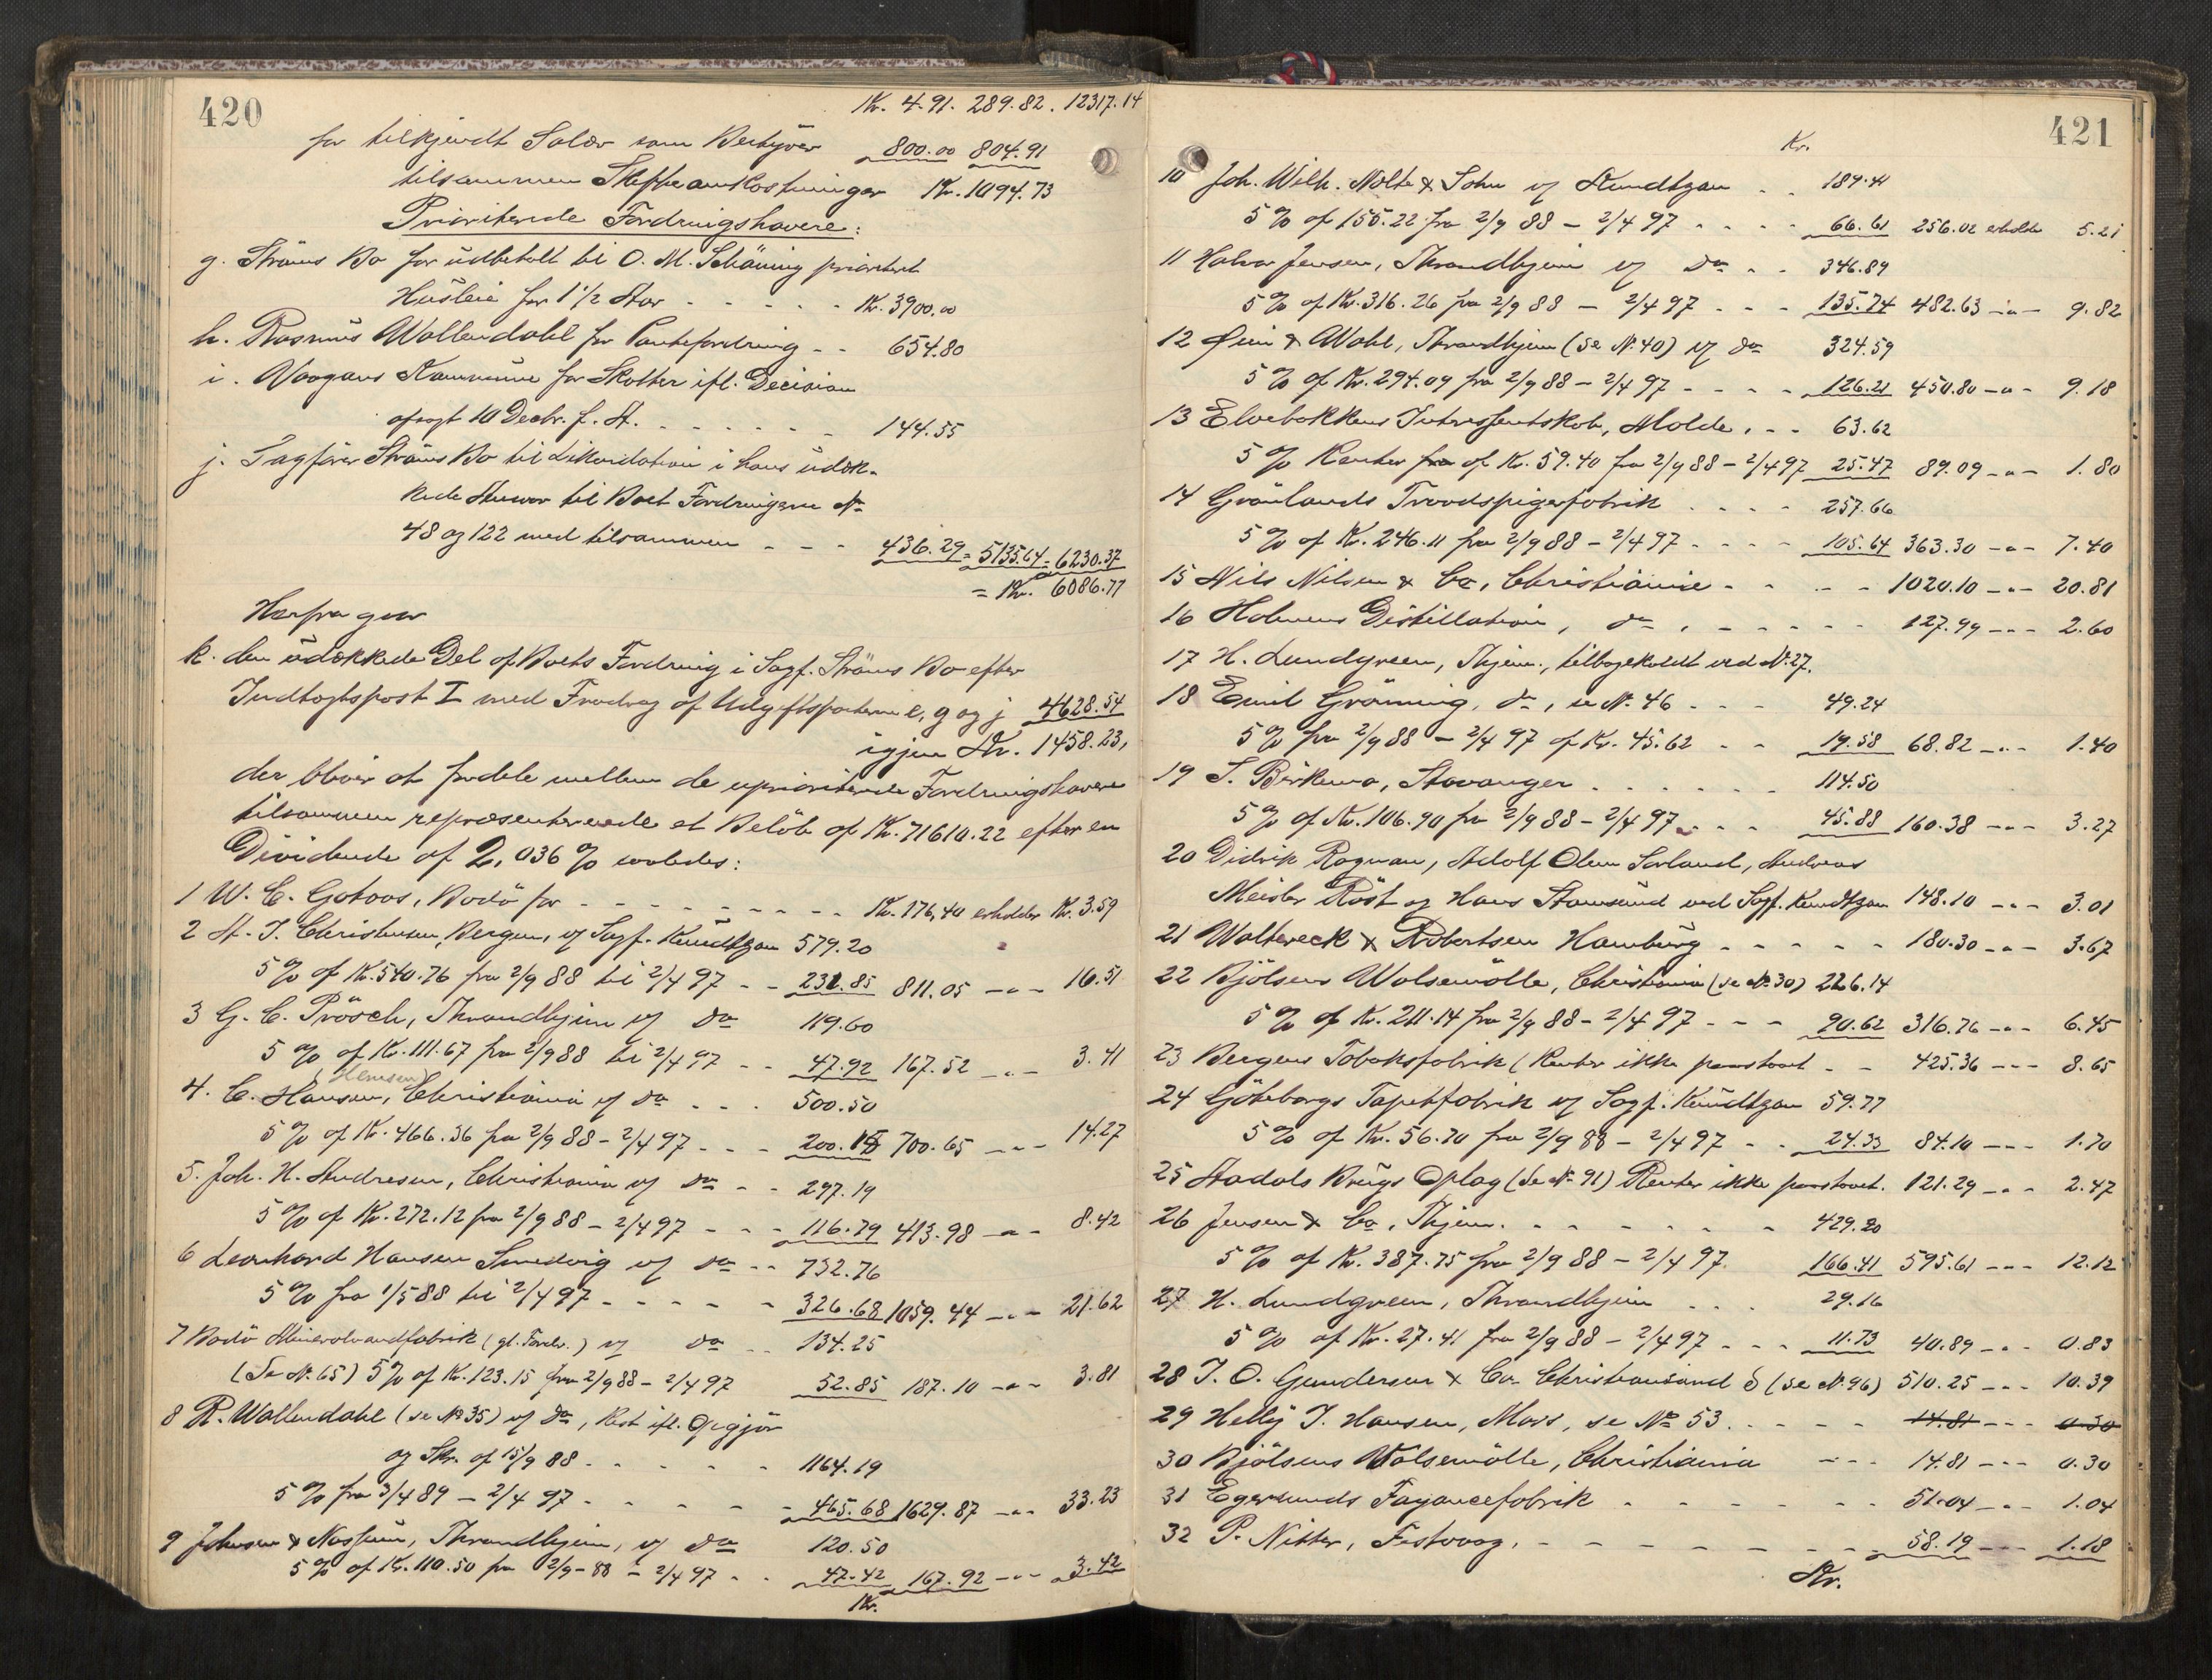 420
Kr. 4.91. 289.82. 12317.14
for tilkjendt Salær som Bestyrer 800.00 804.91
tilsammen Skifteomkostninger Kr. 1094.73
Prioriterede Fordringshavere:
g. Ströms Bo for udbetalt til O. M. Schöning prioritert
Husleie for 1 1/2 Aar - - - - - Kr. 3900.00
h. Rasmus Wollendahl for Pantefordring - - 654.80
i. Vaagans Kommune for Skatter ifl. Decision
afsagt 10 Decbr. f. A. - - - - - - 144.55
j. Sagfører Ströms Bo til Likvidation i hans udæk-
kede Ansvar til Boet Fordringerne No
48 og 122 med tilsammen - - - 436.29 = 5135.64 = 6230.37
= Kr. 6086.77
Herfra gaar
k. den udækkede Del af Boets Fordring i Sagf. Ströms Bo efter
Indtægtspost I med Fradrag af Udgiftsposterne e, g og j 4628.54
igjen Kr. 1458.23,
der bliver at fordele mellem de uprioriterede Fordringshavere
tilsammen repræsenterende et Beløb af Kr. 71610.22 efter en
Dividende af 2,036 % saaledes:
1 W. C. Gotaas, Bodö for - - - - - - - - - Kr. 176.40 erholder Kr. 3.59
2 A. J. Christensen, Bergen, v/ Sagf. Knudtzon 579.20
5 % af Kr. 540.76 fra 2/9 88 til 2/4 97 - - 231.85 811.05 -"- 16.51
3 G. C. Prösch, Throndhjem v/ do 119.60
5 % af Kr. 111.67 fra 2/9 88 til 2/4 97 - - 47.92 167.52 -"- 3.41
(Hemsen)
4. C. Hansen, Christiania v/ do - - - 500.50
5 % af Kr. 466.36 fra 2/9 88 - 2/4 97 - - - 200.15 700.65 -"- 14.27
5. Joh. H. Andresen, Christiania v/ do - - 297.19
5 % af Kr. 272.12 fra 2/9 88 - 2/4 97 - - - 116.79 413.98 -"- 8.42
6 Leonhard Hansen Sundvig v/ do - - 732.76
5 % fra 1/5 88 til 2/4 97 - - - - - 326.68 1059.44 -"- 21.62
7 Bodö Mineralvandfabrik (gl. Fordr.) v/ do - - 134.25
(Se No. 65) 5 % af Kr. 123.15 fra 2/9 88 - 2/4 97 52.85 187.10 -"- 3.81
8 R. Wollendahl (se No 35) v/ do, Rest ifl. Opgjör
og Skr. af 15/9 88 - - - - - 1164.19
5 % fra 3/4 89 - 2/4 97 - - - - - 465.68 1629.87 -"- 33.23
9 Johnsen & Nossum, Throndhjem, v/ do 120.50
5 % af Kr. 110.50 fra 2/9 - 88 - 2/4 97 - - 47.42 167.92 -"- 3.42
Kr.
421
Kr.
10 Joh. Wilh. Nolte & Sohn v/ Knudtzon - - 189.41
5 % af 155.22 fra 2/9 88 - 2/4 97 - - - - 66.61 256.02 erholder 5.21
11 Halvor Jensen, Throndhjem v/ do - - 346.89
5 % af Kr. 316.26 fra 2/9 88 - 2/4 97 - - - 135.74 482.63 -"- 9.82
12 Huin & Wahl, Throndhjem (se No. 40) v/ do 324.59
5 % af Kr. 294.09 fra 2/9 88 - 2/4 97 - - - - 126.21 450.80 -"- 9.18
13 Elvebakkens Interessentskab, Molde, - - 63.62
5 % Renter fra af Kr. 59.40 fra 2/9 88 - 2/4 97 25.47 89.09 -"- 1.80
14 Grönlands Traadspigerfabrik - - - - 257.66
5 % af Kr. 246.11 fra 2/9 88 - 2/4 97 - - - - 105.64 363.30 -"- 7.40
15 Nils Nilsen & Co, Christiania - - - - - 1020.10 -"- 20.81
16 Holmens Distillation, do, - - - - - - 127.99 -"- 2.60
17 H. Lundgreen, Thjem, tilbagekaldt ved No. 27.
18 Emil Grönning, do, se No. 46 - - - 49.24
5 % fra 2/9 88 - 2/4 97 af Kr. 45.62 - - 19.58 68.82 -"- 1.40
19 S. Birkemo, Stavanger - - - - - - 114.50
5 % af Kr. 106.90 fra 2/9 88 - 2/4 97 - - - 45.88 160.38 -"- 3.27
20 Didrik Rognan, Adolf Olsen Sorland, Andreas
Meisler Röst og Hans Stamsund ved Sagf. Knudtzon 148.10 -"- 3.01
21 Waltereck & Robertsen Hamburg - - - - - 180.30 -"- 3.67
22 Bjölsens Valsemölle, Christiania (se No. 30) 226.14
5 % af Kr. 211.14 fra 2/9 88 - 2/4 97 - - - 90.62 316.76 -"- 6.45
23 Bergens Tobaksfabrik (Renter ikke paastaaet - - 425.36 -"- 8.65
24 Göteborgs Tapetfabrik v/ Sagf. Knudtzon 59.77
5 % af Kr. 56.70 fra 2/9 88 - 2/4 97 - - 24.33 84.10 -"- 1.70
25 Aadals Brugs Oplag (Se No 91) Renter ikke paastaaet. 121.29 -"- 2.47
26 Jensen & Co, Thjem. - - - - - - - 429.20
5 % af Kr. 387.75 fra 2/9 88 - 2/4 97 166.41 595.61 -"- 12.12
27 H. Lundgreen, Throndhjem - - - 29.16
5 % af Kr. 27.41 fra 2/9 88 - 2/4 97 - - - 11.73 40.89 -"- 0.83
28 J. O. Gundersen & Co. Christiansand S (Se No. 96) 510.25 -"- 10.39
29 Helly J. Hansen, Moss, se No 53 - - - - - 14.81 -"- 0.30
30 Bjölsens Valsemölle, Christiania - - - 14.81 -"- 0.30
31 Egersunds Fayancefabrik - - - - - - - 51.04 -"- 1.04
32 P. Nitter, Festvaag, - - - - - - - - 58.19 -"- 1.18
Kr.